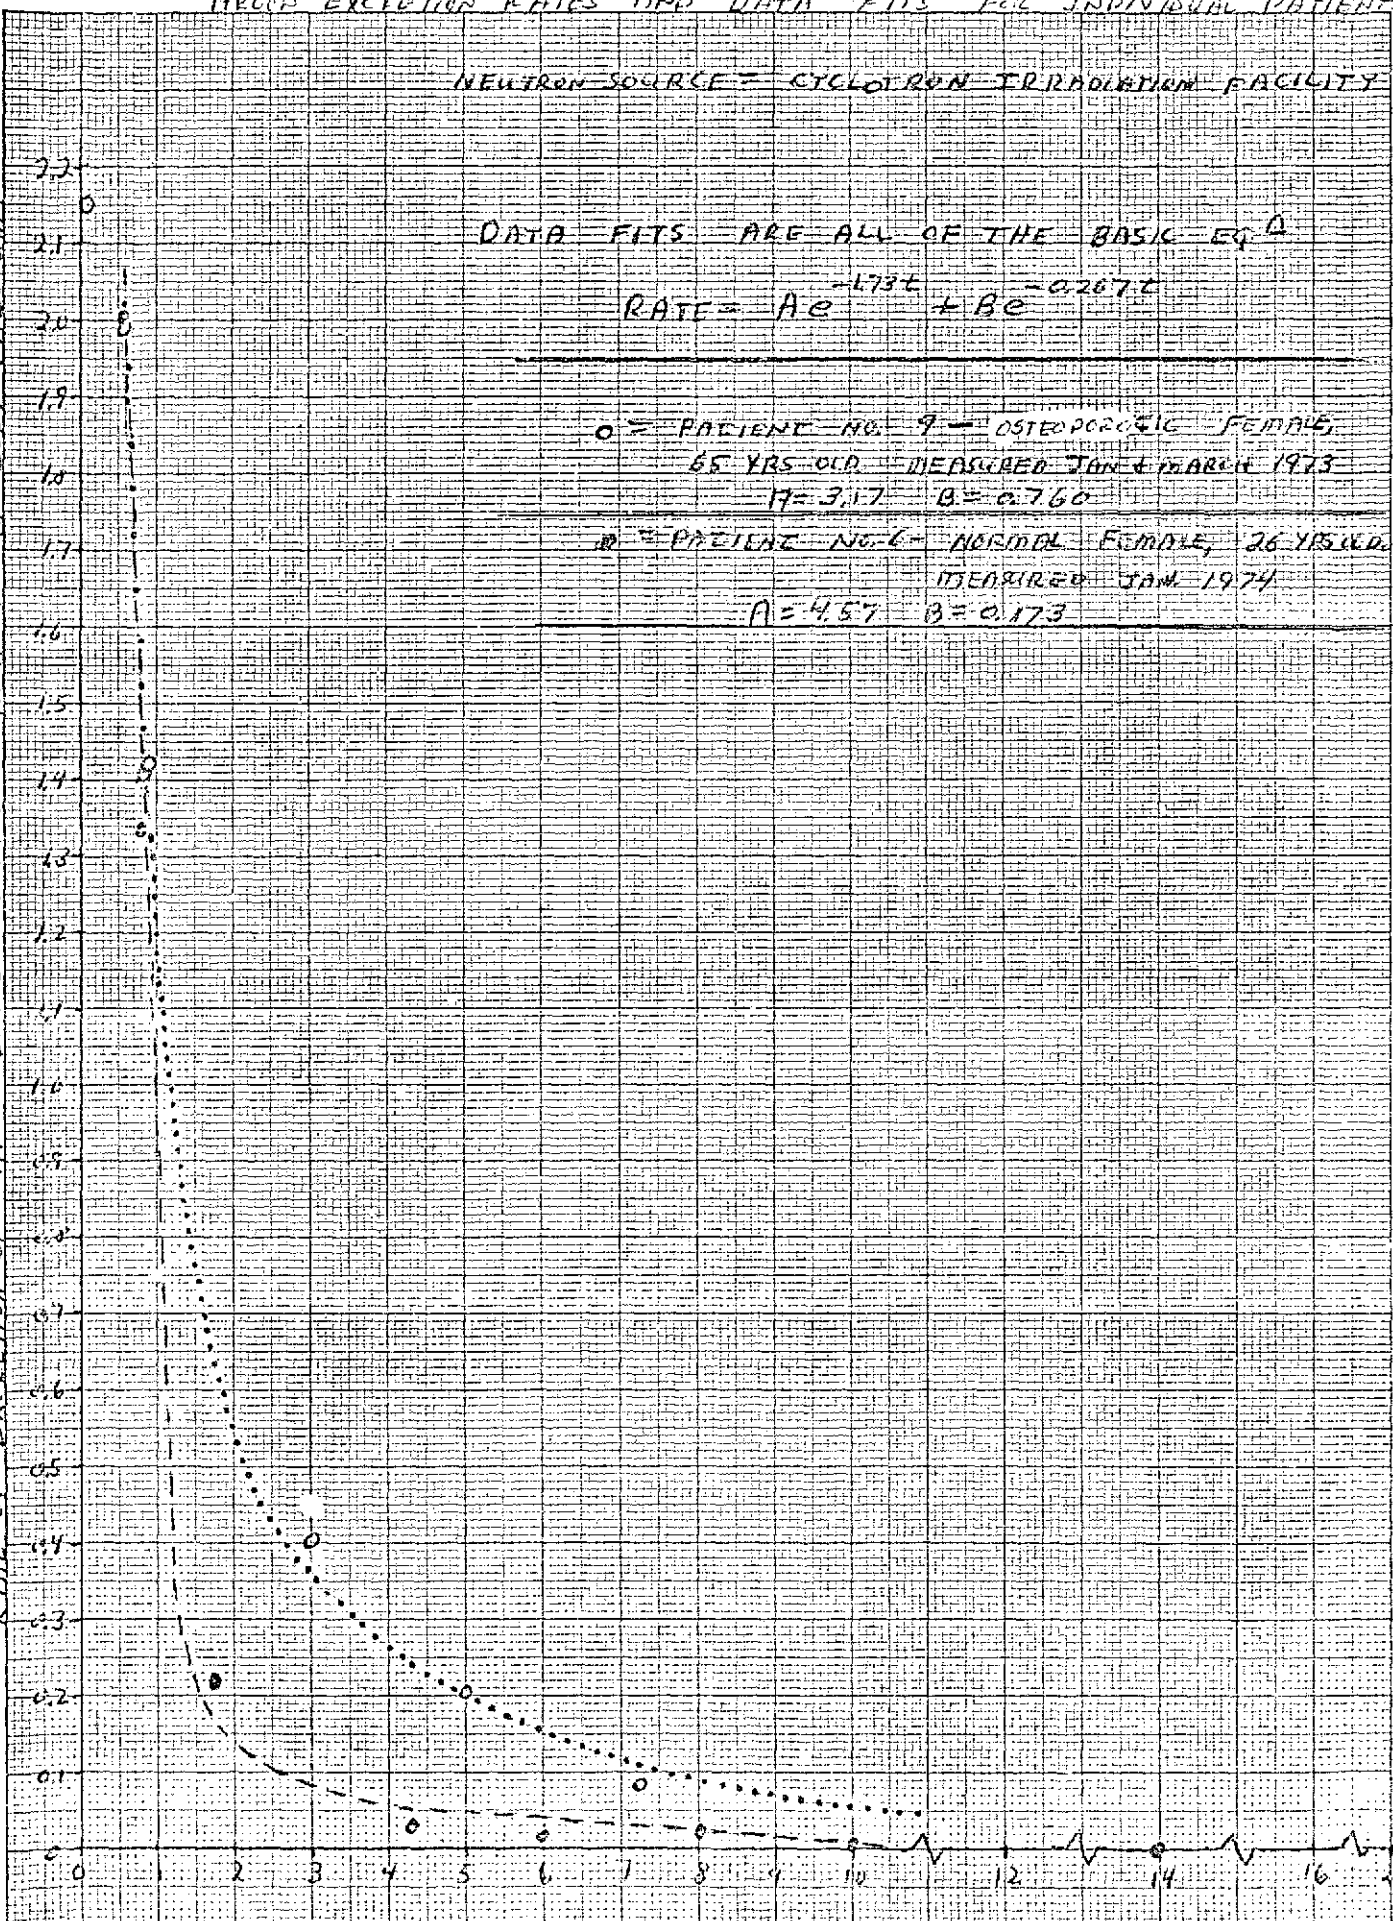 EXCRETION RATES AND DATA FITS FOR INDIVIDUAL PATIENT
NEUTRON SOURCE = CYCLOTRON IRRADIATION FACILITY
DATA FITS ARE ALL OF THE BASIC EQ
RATE = Ae^-1.73t + Be^-0.267t
o = PATIENT NO. 9 - OSTEOPOROTIC FEMALE,
65 YRS OLD - MEASURED JAN & MARCH 1973
A = 3.17 B = 0.760
= PATIENT NO. 6 - NORMAL FEMALE, 26 YRS OLD.
MEASURED JAN. 1974
A = 4.57 B = 0.173
2.2
2.1
2.0
1.9
1.8
1.7
1.6
1.5
1.4
1.3
1.2
1.1
1.0
0.9
0.8
0.7
0.6
0.5
0.4
0.3
0.2
0.1
0
0 1 2 3 4 5 6 7 8 9 10 12 14 16